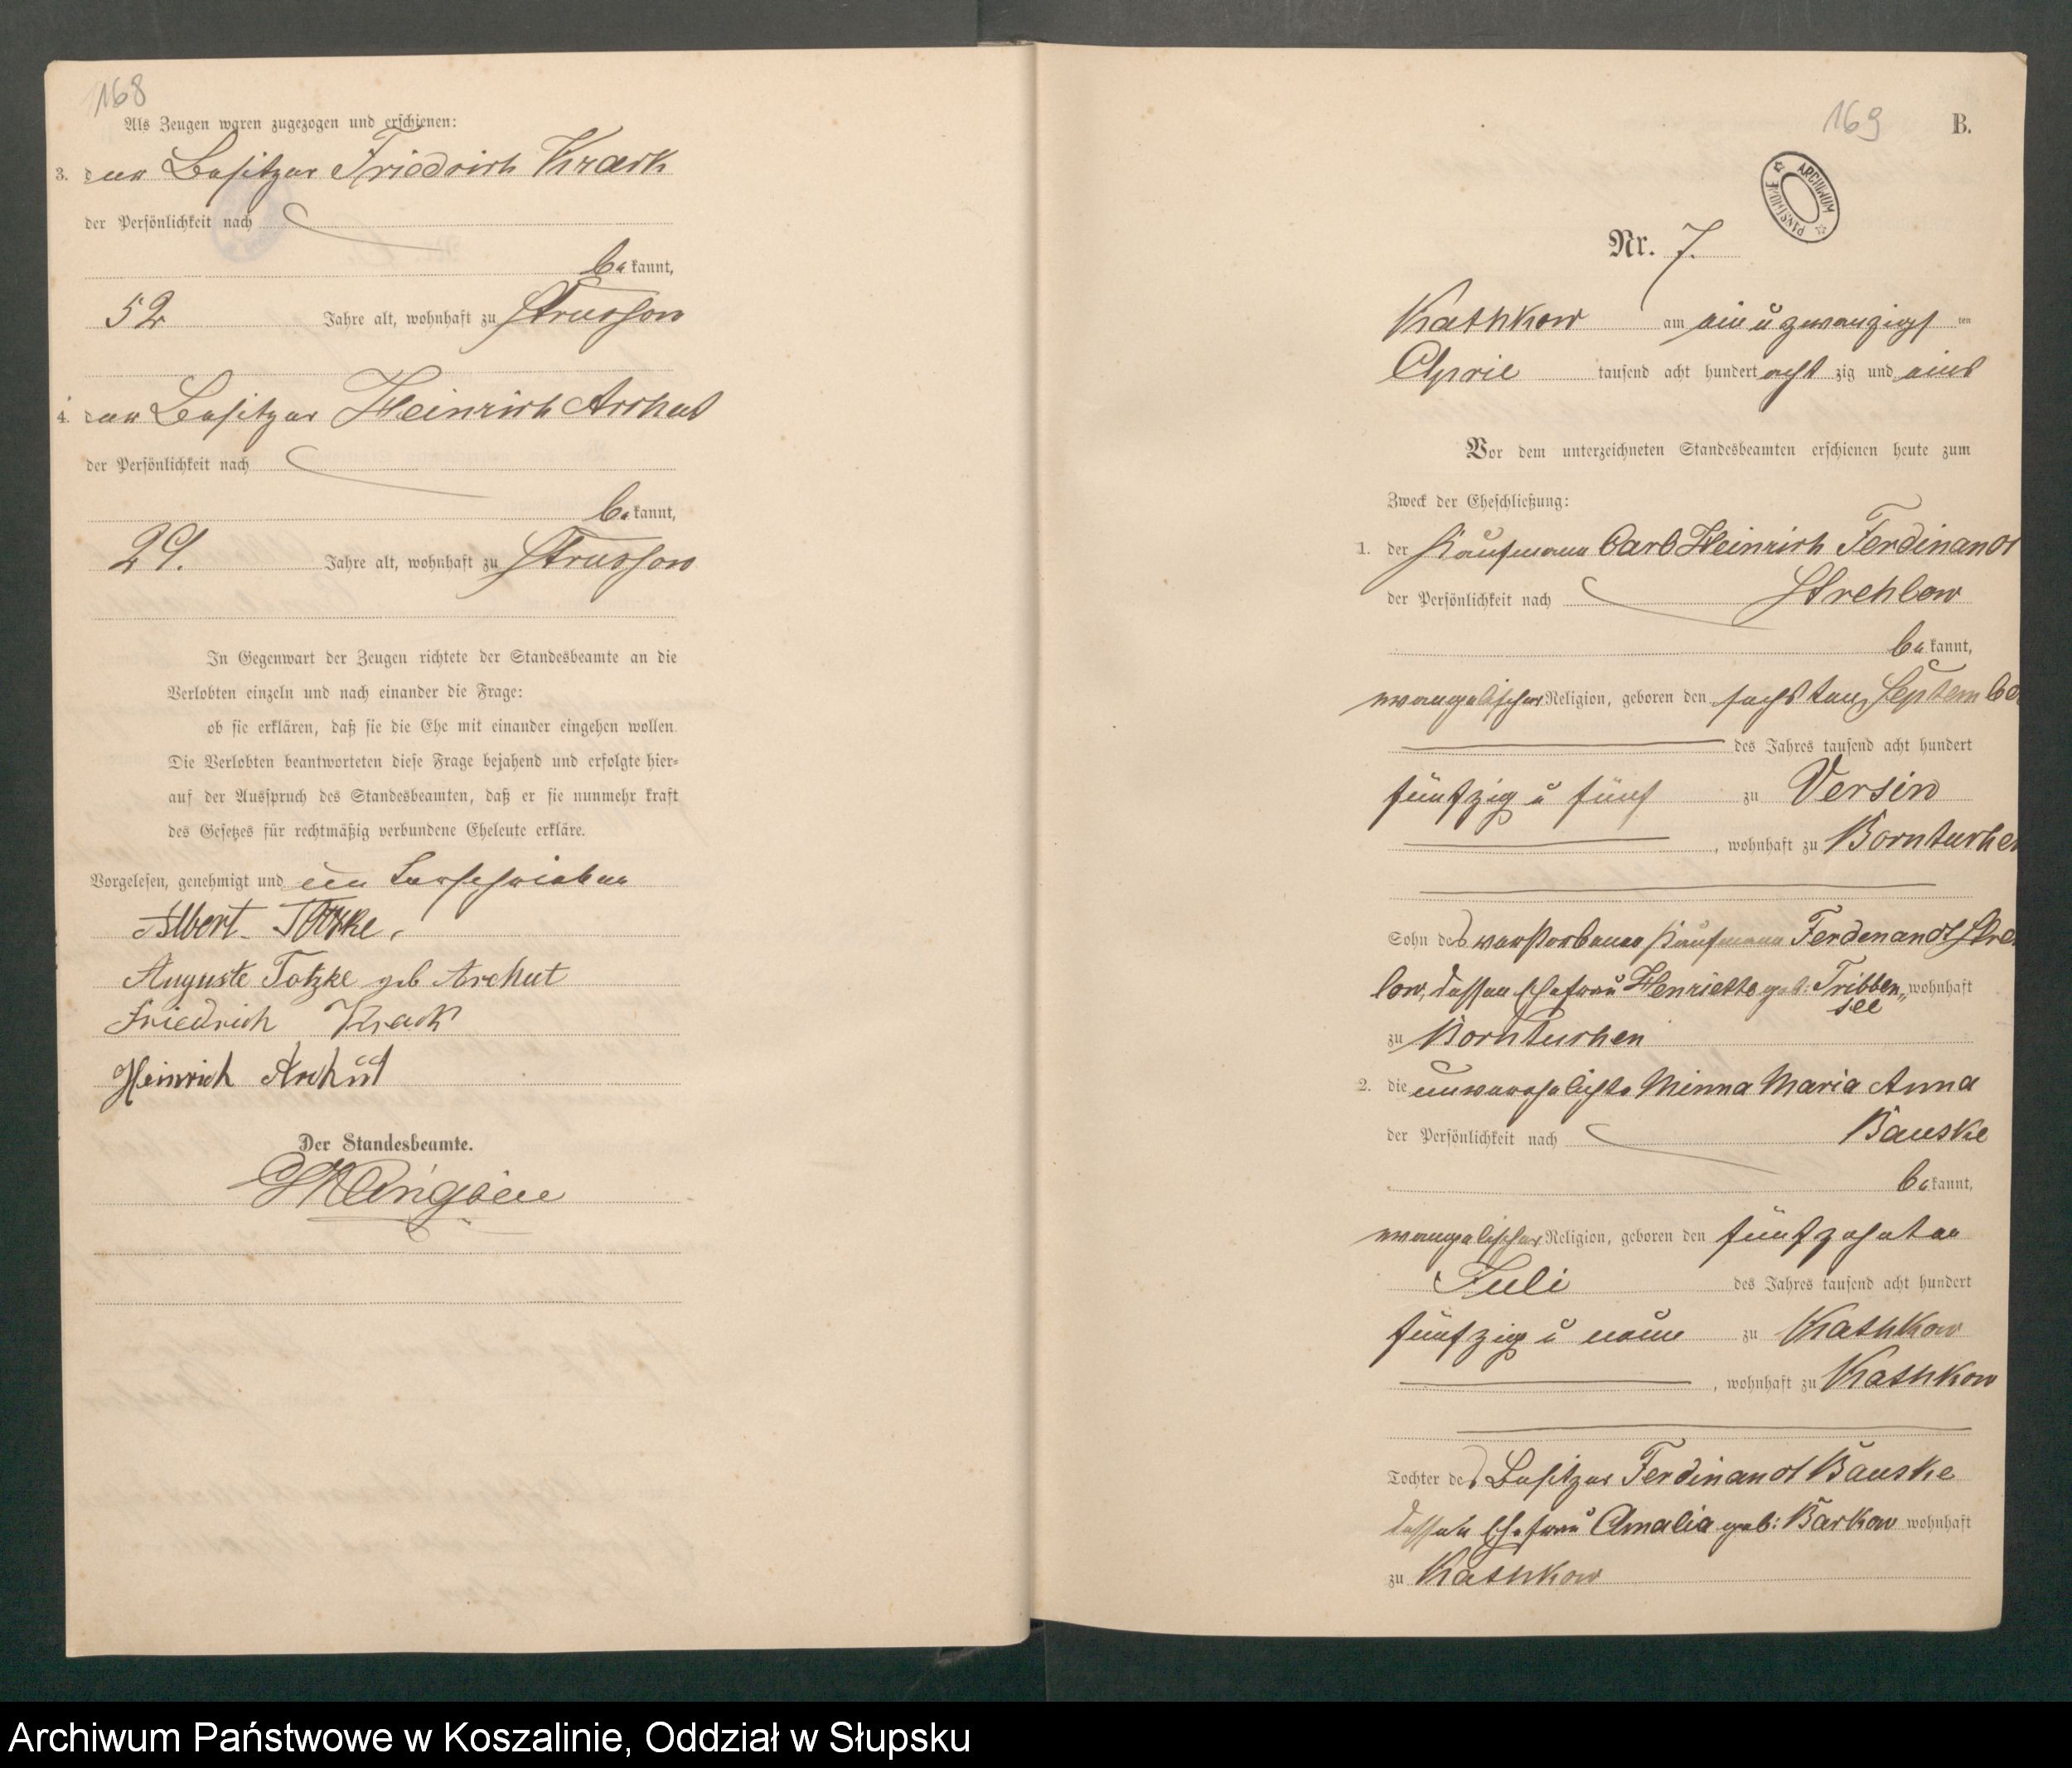 168
Als Zeugen waren zugezogen und erschienen:
3. der Besitzer Friedrich Krack
der Persönlichkeit nach
be kannt,
52 Jahre alt, wohnhaft zu Strussow
4. der Besitzer Heinrich Archut
der Persönlichkeit nach
be kannt,
29. Jahre alt, wohnhaft zu Strussow
In Gegenwart der Zeugen richtete der Standesbeamte an die
Verlobten einzeln und nach einander die Frage:
ob sie erklären, daß sie die Ehe mit einander eingehen wollen.
Die Verlobten beantworteten diese Frage bejahend und erfolgte hier-
auf der Ausspruch des Standesbeamten, daß er sie nunmehr kraft
des Gesetzes für rechtmäßig verbundene Eheleute erkläre.
Vorgelesen, genehmigt und unterschrieben
Albert Totzke.
Auguste Totzke geb Archut
Friedrich Krack
Heinrich Archut
Der Standesbeamte.
169
B.
ARCHIWUM PAŃSTWOWE
Nr. 7.
Kathkow am ein u zwanzigst ten
April tausend acht hundert acht zig und eins
Vor dem unterzeichneten Standesbeamten erschienen heute zum
Zweck der Eheschließung:
1. der Kaufmann Carl Heinrich Ferdinand
der Persönlichkeit nach Strehlow
be kannt,
evangelischer Religion, geboren den sechsten Septembe
des Jahres tausend acht hundert
fünfzig u fünf zu Versin
, wohnhaft zu Borntuchen
Sohn des verstorbenen Kaufmann Ferdinand Streh
low, dessen Ehefrau Henriette geb: Tribben„ wohnhaft
see
zu Borntuchen
2. die unverehelichte Minna Maria Anna
der Persönlichkeit nach Bauske
be kannt,
evangelischer Religion, geboren den fünfzehnten
Juli des Jahres tausend acht hundert
fünfzig u neun zu Kathkow
, wohnhaft zu Kathkow
Tochter des Besitzer Ferdinand Bauske
dessen Ehefrau Amalia geb: Barkow wohnhaft
zu Kathkow
Archiwum Państwowe w Koszalinie, Oddział w Słupsku